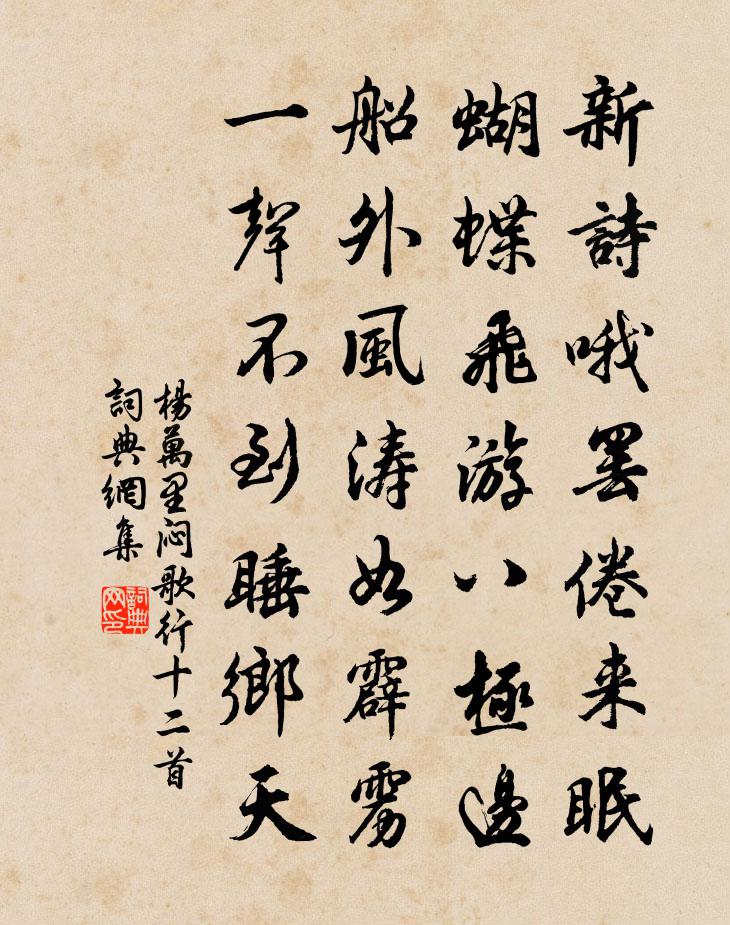 新詩哦罢倦来眠
蝴蝶飛游八極邊
船外風涛如霹雳
一聲不到睡鄉天
楊萬里闷歌行十二首
詞典網集
詞典
网印